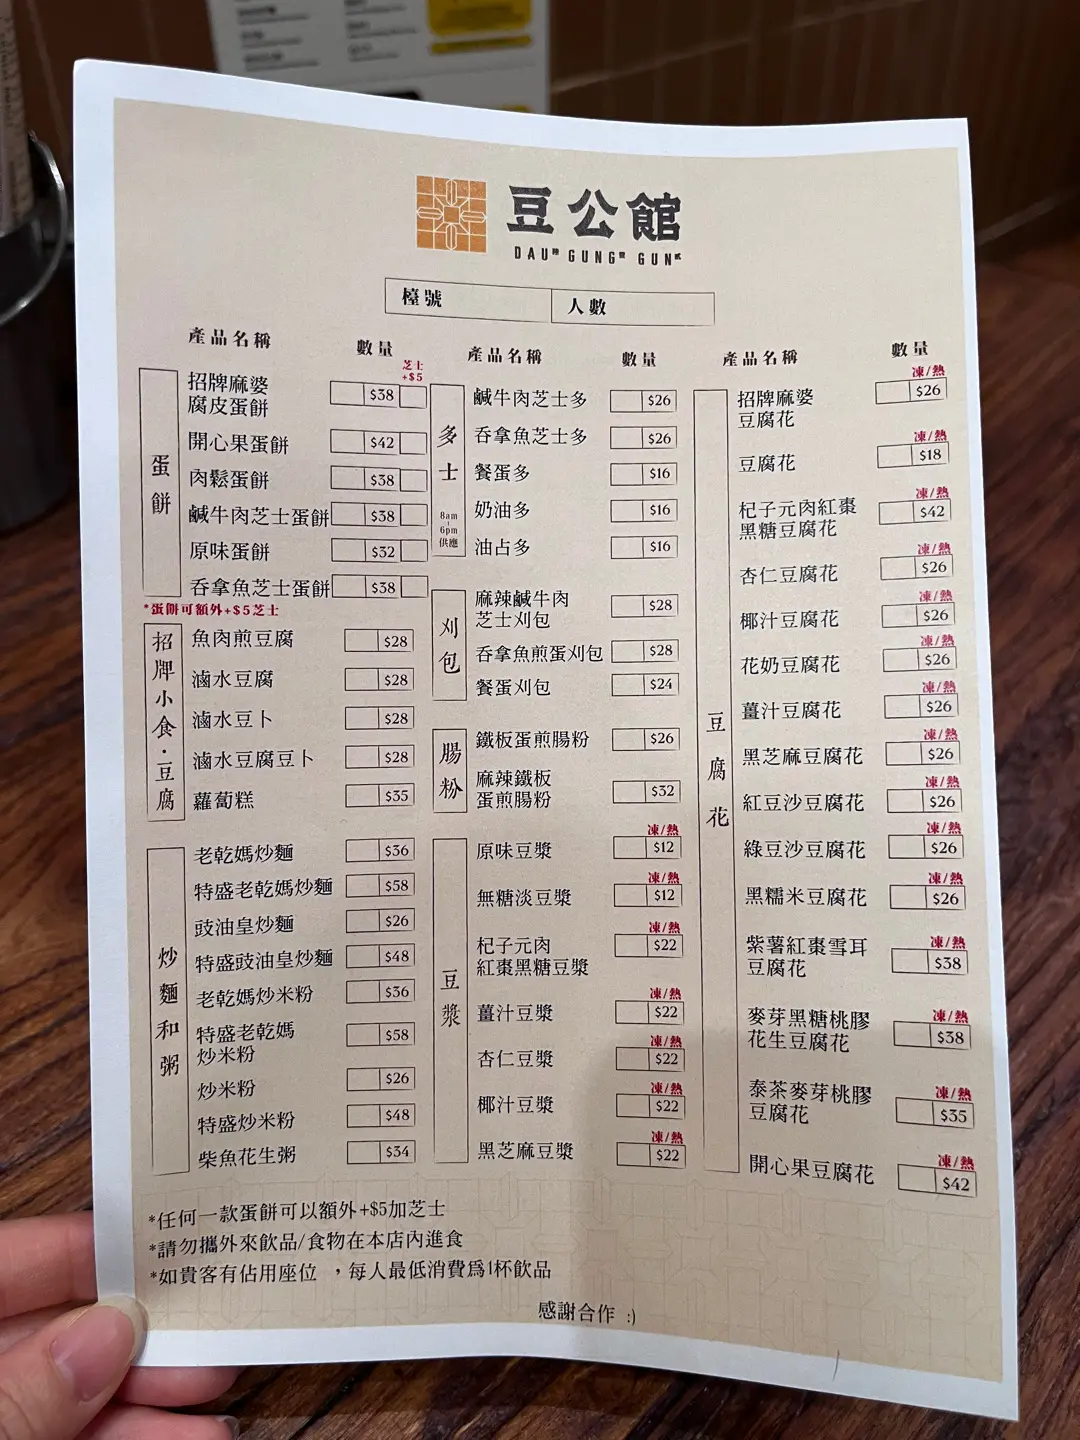 豆公館
DAU GUNG GUN
檯號
人數
產品名稱
數量
芝士
+$5
蛋餅
招牌麻婆
腐皮蛋餅
$38
開心果蛋餅
$42
肉鬆蛋餅
$38
鹹牛肉芝士蛋餅
$38
原味蛋餅
$32
吞拿魚芝士蛋餅
$38
*蛋餅可額外+$5芝士
招牌小食·豆腐
魚肉煎豆腐
$28
滷水豆腐
$28
滷水豆卜
$28
滷水豆腐豆卜
$28
蘿蔔糕
$35
炒麵和粥
老乾媽炒麵
$36
特盛老乾媽炒麵
$58
豉油皇炒麵
$26
特盛豉油皇炒麵
$48
老乾媽炒米粉
$36
特盛老乾媽
炒米粉
$58
炒米粉
$26
特盛炒米粉
$48
柴魚花生粥
$34
產品名稱
數量
多士
8am
-
6pm
供應
鹹牛肉芝士多
$26
吞拿魚芝士多
$26
餐蛋多
$16
奶油多
$16
油占多
$16
刈包
麻辣鹹牛肉
芝士刈包
$28
吞拿魚煎蛋刈包
$28
餐蛋刈包
$24
腸粉
鐵板蛋煎腸粉
$26
麻辣鐵板
蛋煎腸粉
$32
豆漿
原味豆漿
凍/熱
$12
無糖淡豆漿
凍/熱
$12
杞子元肉
紅棗黑糖豆漿
凍/熱
$22
薑汁豆漿
凍/熱
$22
杏仁豆漿
凍/熱
$22
椰汁豆漿
凍/熱
$22
黑芝麻豆漿
凍/熱
$22
產品名稱
數量
豆腐花
招牌麻婆
豆腐花
凍/熱
$26
豆腐花
凍/熱
$18
杞子元肉紅棗
黑糖豆腐花
凍/熱
$42
杏仁豆腐花
凍/熱
$26
椰汁豆腐花
凍/熱
$26
花奶豆腐花
凍/熱
$26
薑汁豆腐花
凍/熱
$26
黑芝麻豆腐花
凍/熱
$26
紅豆沙豆腐花
凍/熱
$26
綠豆沙豆腐花
凍/熱
$26
黑糯米豆腐花
凍/熱
$26
紫薯紅棗雪耳
豆腐花
凍/熱
$38
麥芽黑糖桃膠
花生豆腐花
凍/熱
$38
泰茶麥芽桃膠
豆腐花
凍/熱
$35
開心果豆腐花
凍/熱
$42
*任何一款蛋餅可以額外+$5加芝士
*請勿攜外來飲品/食物在本店內進食
*如貴客有佔用座位 ，每人最低消費爲1杯飲品
感謝合作 :)